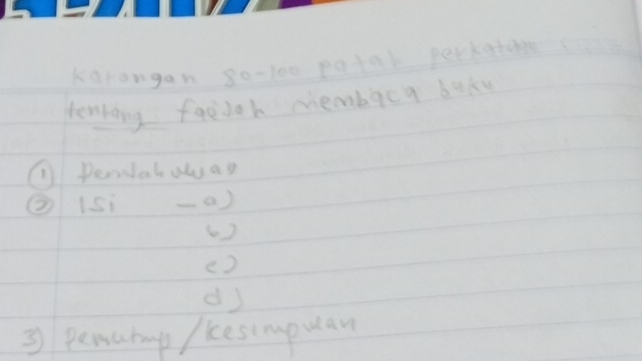 Karangan 80-100 patah perkataan
tentang faedah membaca buku
① Pendahuluan
② Isi - a)
b)
c)
d)
3) Penutup/kesimpulan